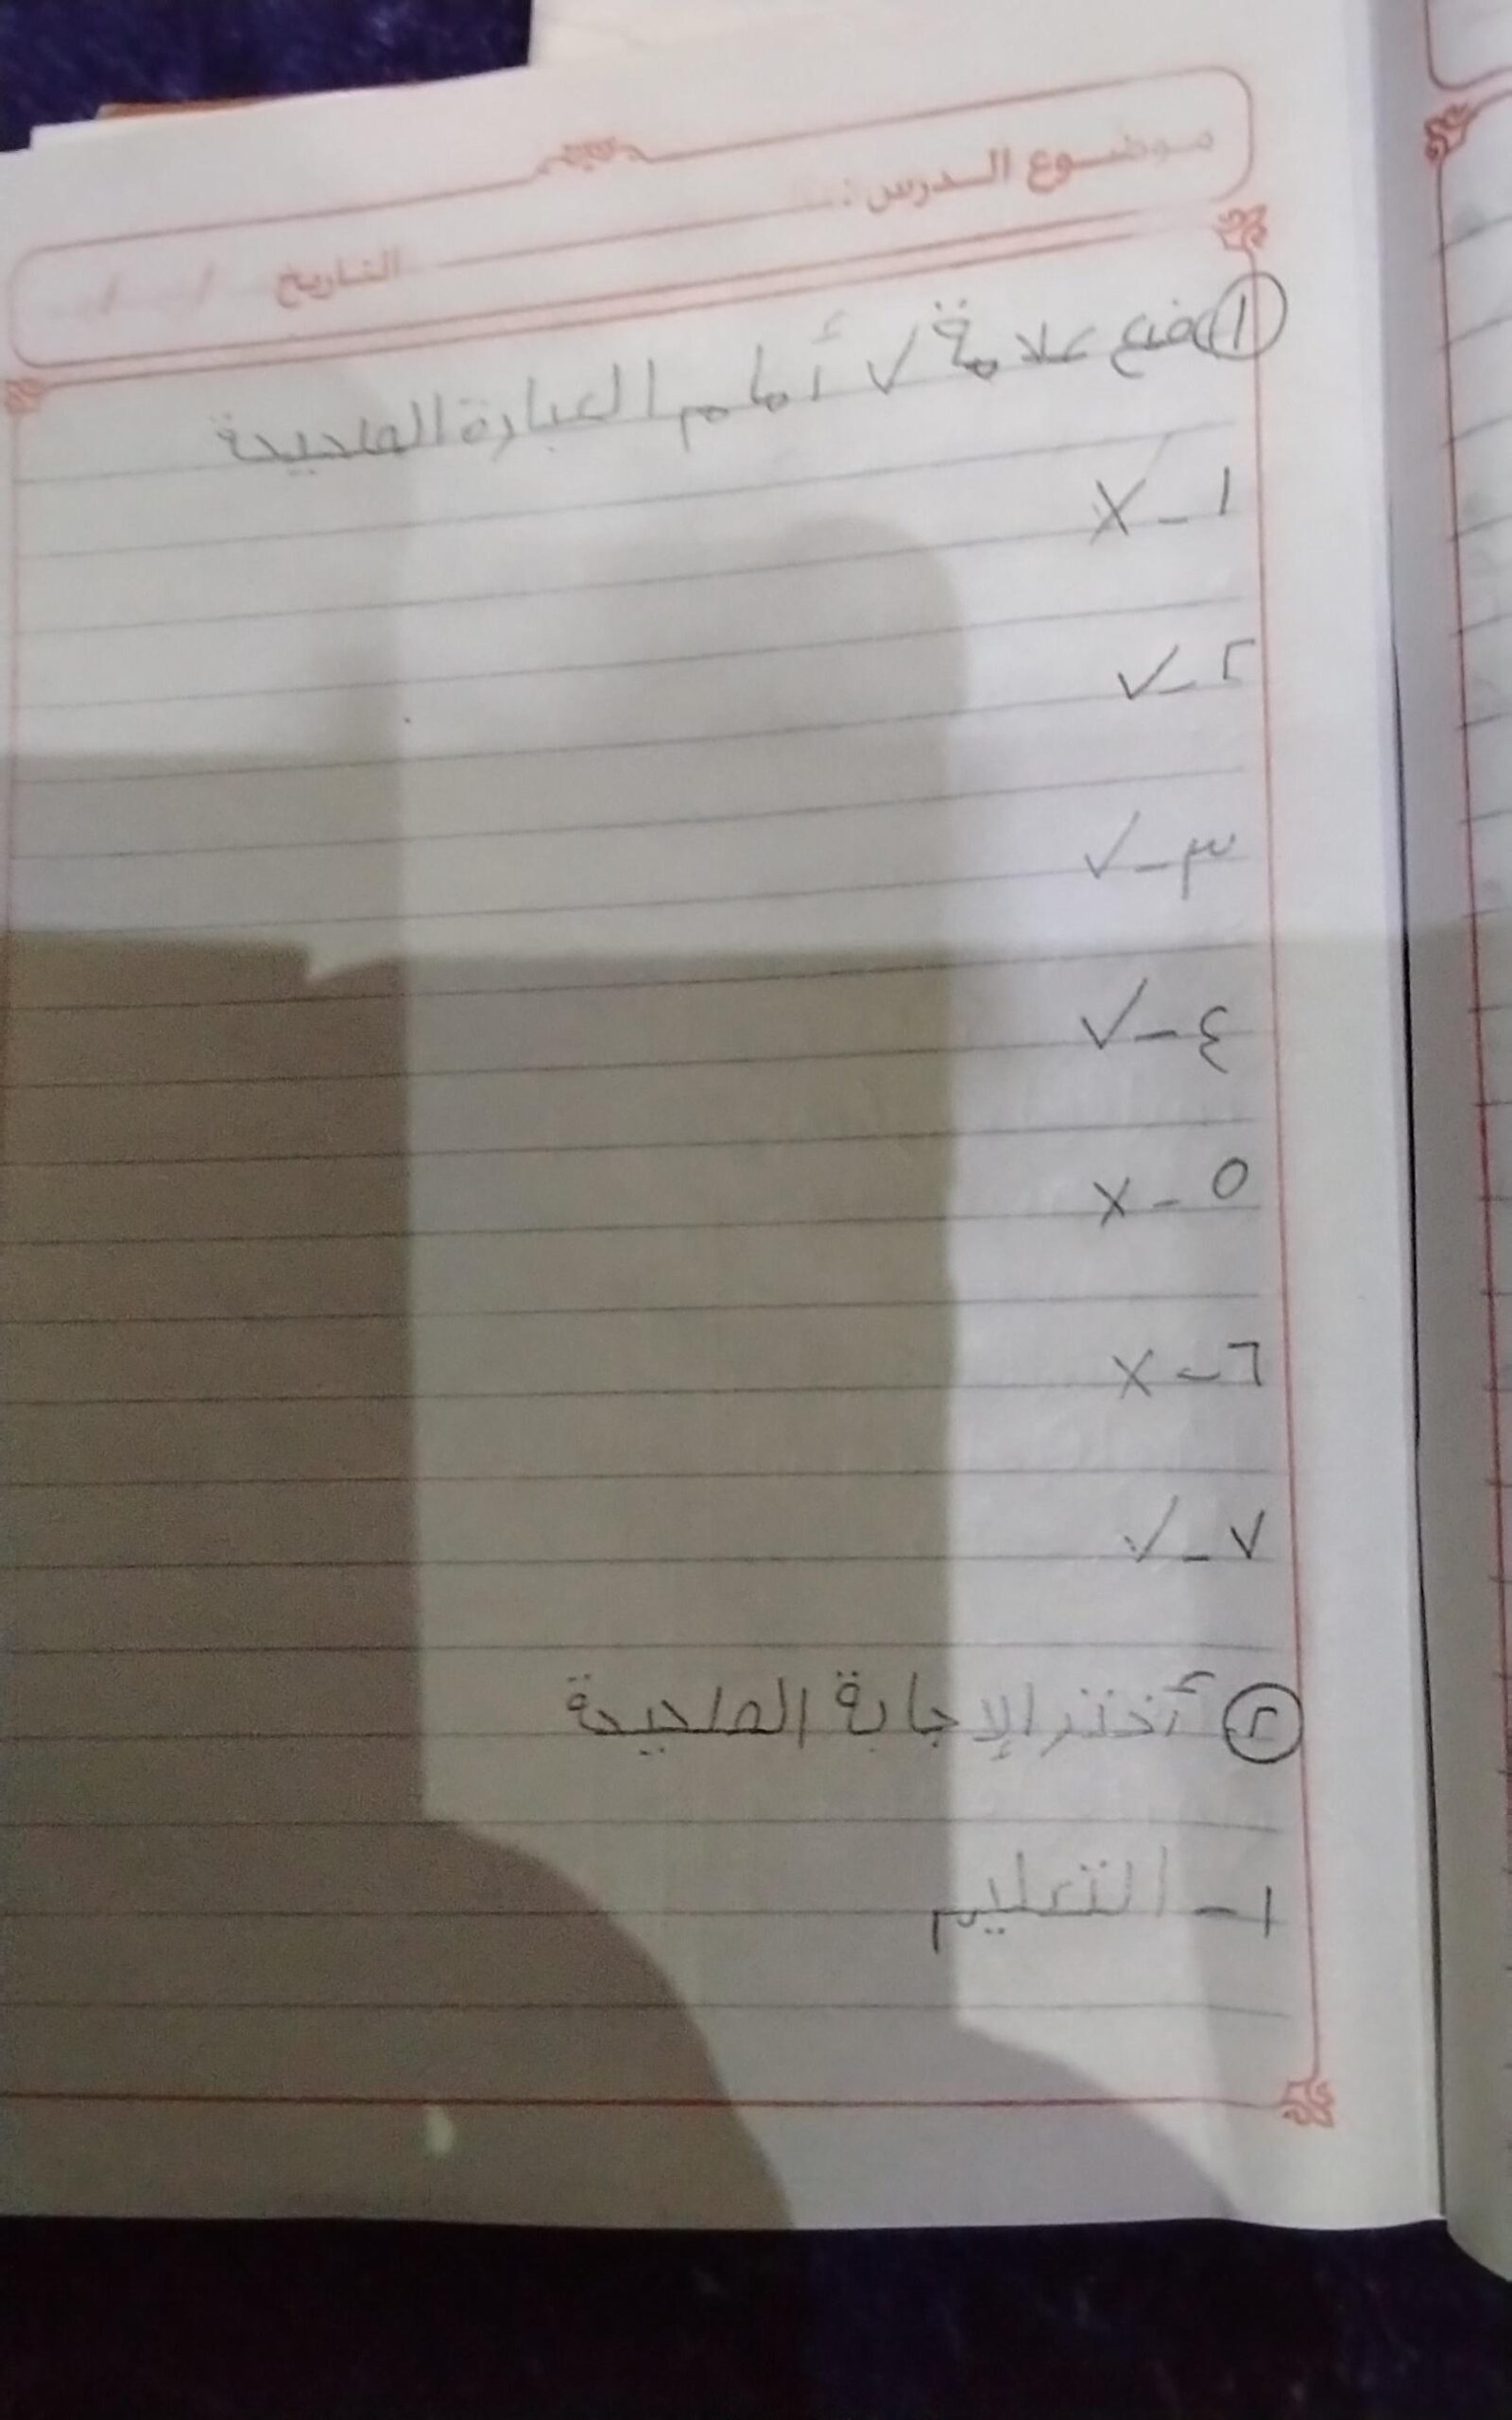 موضوع الدرس :
التاريخ / /
١ ضع علامة ✓ أمام العبارة الصحيحة
١ - X
٢ - ✓
٣ - ✓
٤ - ✓
٥ - X
٦ - X
٧ - ✓
٢ أختر الإجابة الصحيحة
١ - التعليم